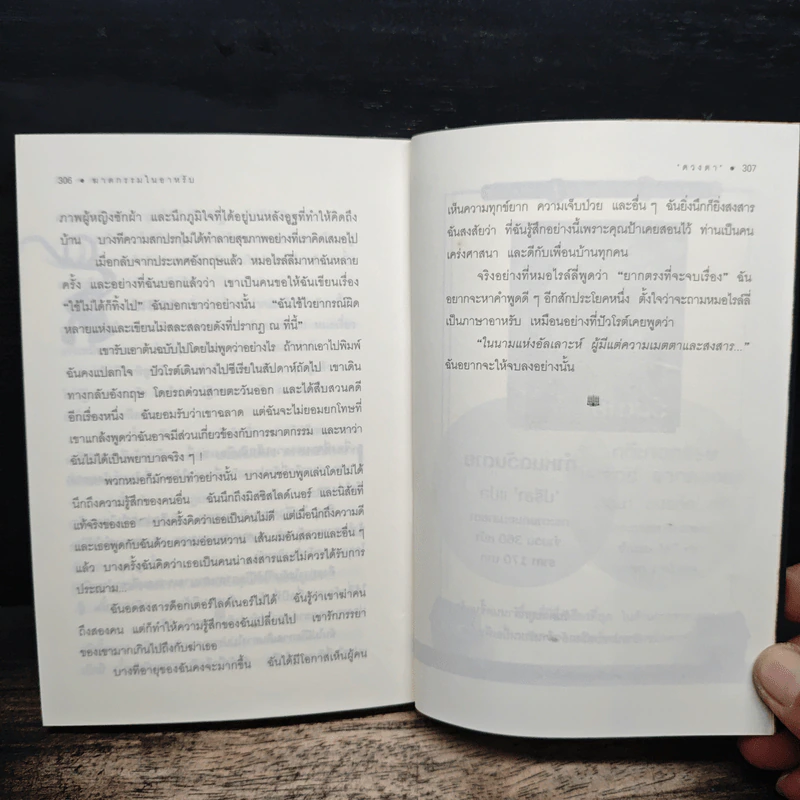 306 • ฆาตกรรมในอาหรับ
ภาพผู้หญิงซักผ้า และนึกภูมิใจที่ได้อยู่บนหลังอูฐที่ทำให้คิดถึง
บ้าน บางทีความสกปรกไม่ได้ทำลายสุขภาพอย่างที่เราคิดเสมอไป
เมื่อกลับจากประเทศอังกฤษแล้ว หมอไรล์ลี่มาหาฉันหลาย
ครั้ง และอย่างที่ฉันบอกแล้วว่า เขาเป็นคนขอให้ฉันเขียนเรื่อง
"ใช้ไม่ได้ก็ทิ้งไป" ฉันบอกเขาว่าอย่างนั้น "ฉันใช้ไวยากรณ์ผิด
หลายแห่งและเขียนไม่สละสลวยดังที่ปรากฏ ณ ที่นี้"
เขารับเอาต้นฉบับไปโดยไม่พูดว่าอย่างไร ถ้าหากเอาไปพิมพ์
ฉันคงแปลกใจ ปัวโรต์เดินทางไปซีเรียในสัปดาห์ถัดไป เขาเดิน
ทางกลับอังกฤษ โดยรถด่วนสายตะวันออก และได้สืบสวนคดี
อีกเรื่องหนึ่ง ฉันยอมรับว่าเขาฉลาด แต่ฉันจะไม่ยอมยกโทษที่
เขาแกล้งพูดว่าฉันอาจมีส่วนเกี่ยวข้องกับการฆาตกรรม และหาว่า
ฉันไม่ได้เป็นพยาบาลจริง ๆ !
พวกหมอก็มักชอบทำอย่างนั้น บางคนชอบพูดเล่นโดยไม่ได้
นึกถึงความรู้สึกของคนอื่น ฉันนึกถึงมิสซิสไลด์เนอร์ และนิสัยที่
แท้จริงของเธอ บางครั้งคิดว่าเธอเป็นคนไม่ดี แต่เมื่อนึกถึงความดี
และเธอพูดกับฉันด้วยความอ่อนหวาน เส้นผมอันสลวยและอื่น ๆ
แล้ว บางครั้งฉันคิดว่าเธอเป็นคนน่าสงสารและไม่ควรได้รับการ
ประณาม
ฉันอดสงสารด็อกเตอร์ไลด์เนอร์ไม่ได้ ฉันรู้ว่าเขาฆ่าคน
ถึงสองคน แต่ก็ทำให้ความรู้สึกของฉันเปลี่ยนไป เขารักภรรยา
ของเขามากเกินไปถึงกับฆ่าเธอ
บางทีอายุของฉันคงจะมากขึ้น ฉันได้มีโอกาสเห็นผู้คน
"ดวงตา" • 307
เห็นความทุกข์ยาก ความเจ็บป่วย และอื่น ๆ ฉันยิ่งนึกก็ยิ่งสงสาร
ฉันสงสัยว่า ที่ฉันรู้สึกอย่างนี้เพราะคุณป้าเคยสอนไว้ ท่านเป็นคน
เคร่งศาสนา และดีกับเพื่อนบ้านทุกคน
จริงอย่างที่หมอไรล์ลี่พูดว่า "ยากตรงที่จะจบเรื่อง" ฉัน
อยากจะหาคำพูดดี ๆ อีกสักประโยคหนึ่ง ตั้งใจว่าจะถามหมอไรล์ลี่
เป็นภาษาอาหรับ เหมือนอย่างที่ปัวโรต์เคยพูดว่า
"ในนามแห่งอัลเลาะห์ ผู้มีแต่ความเมตตาและสงสาร..."
ฉันอยากจะให้จบลงอย่างนั้น